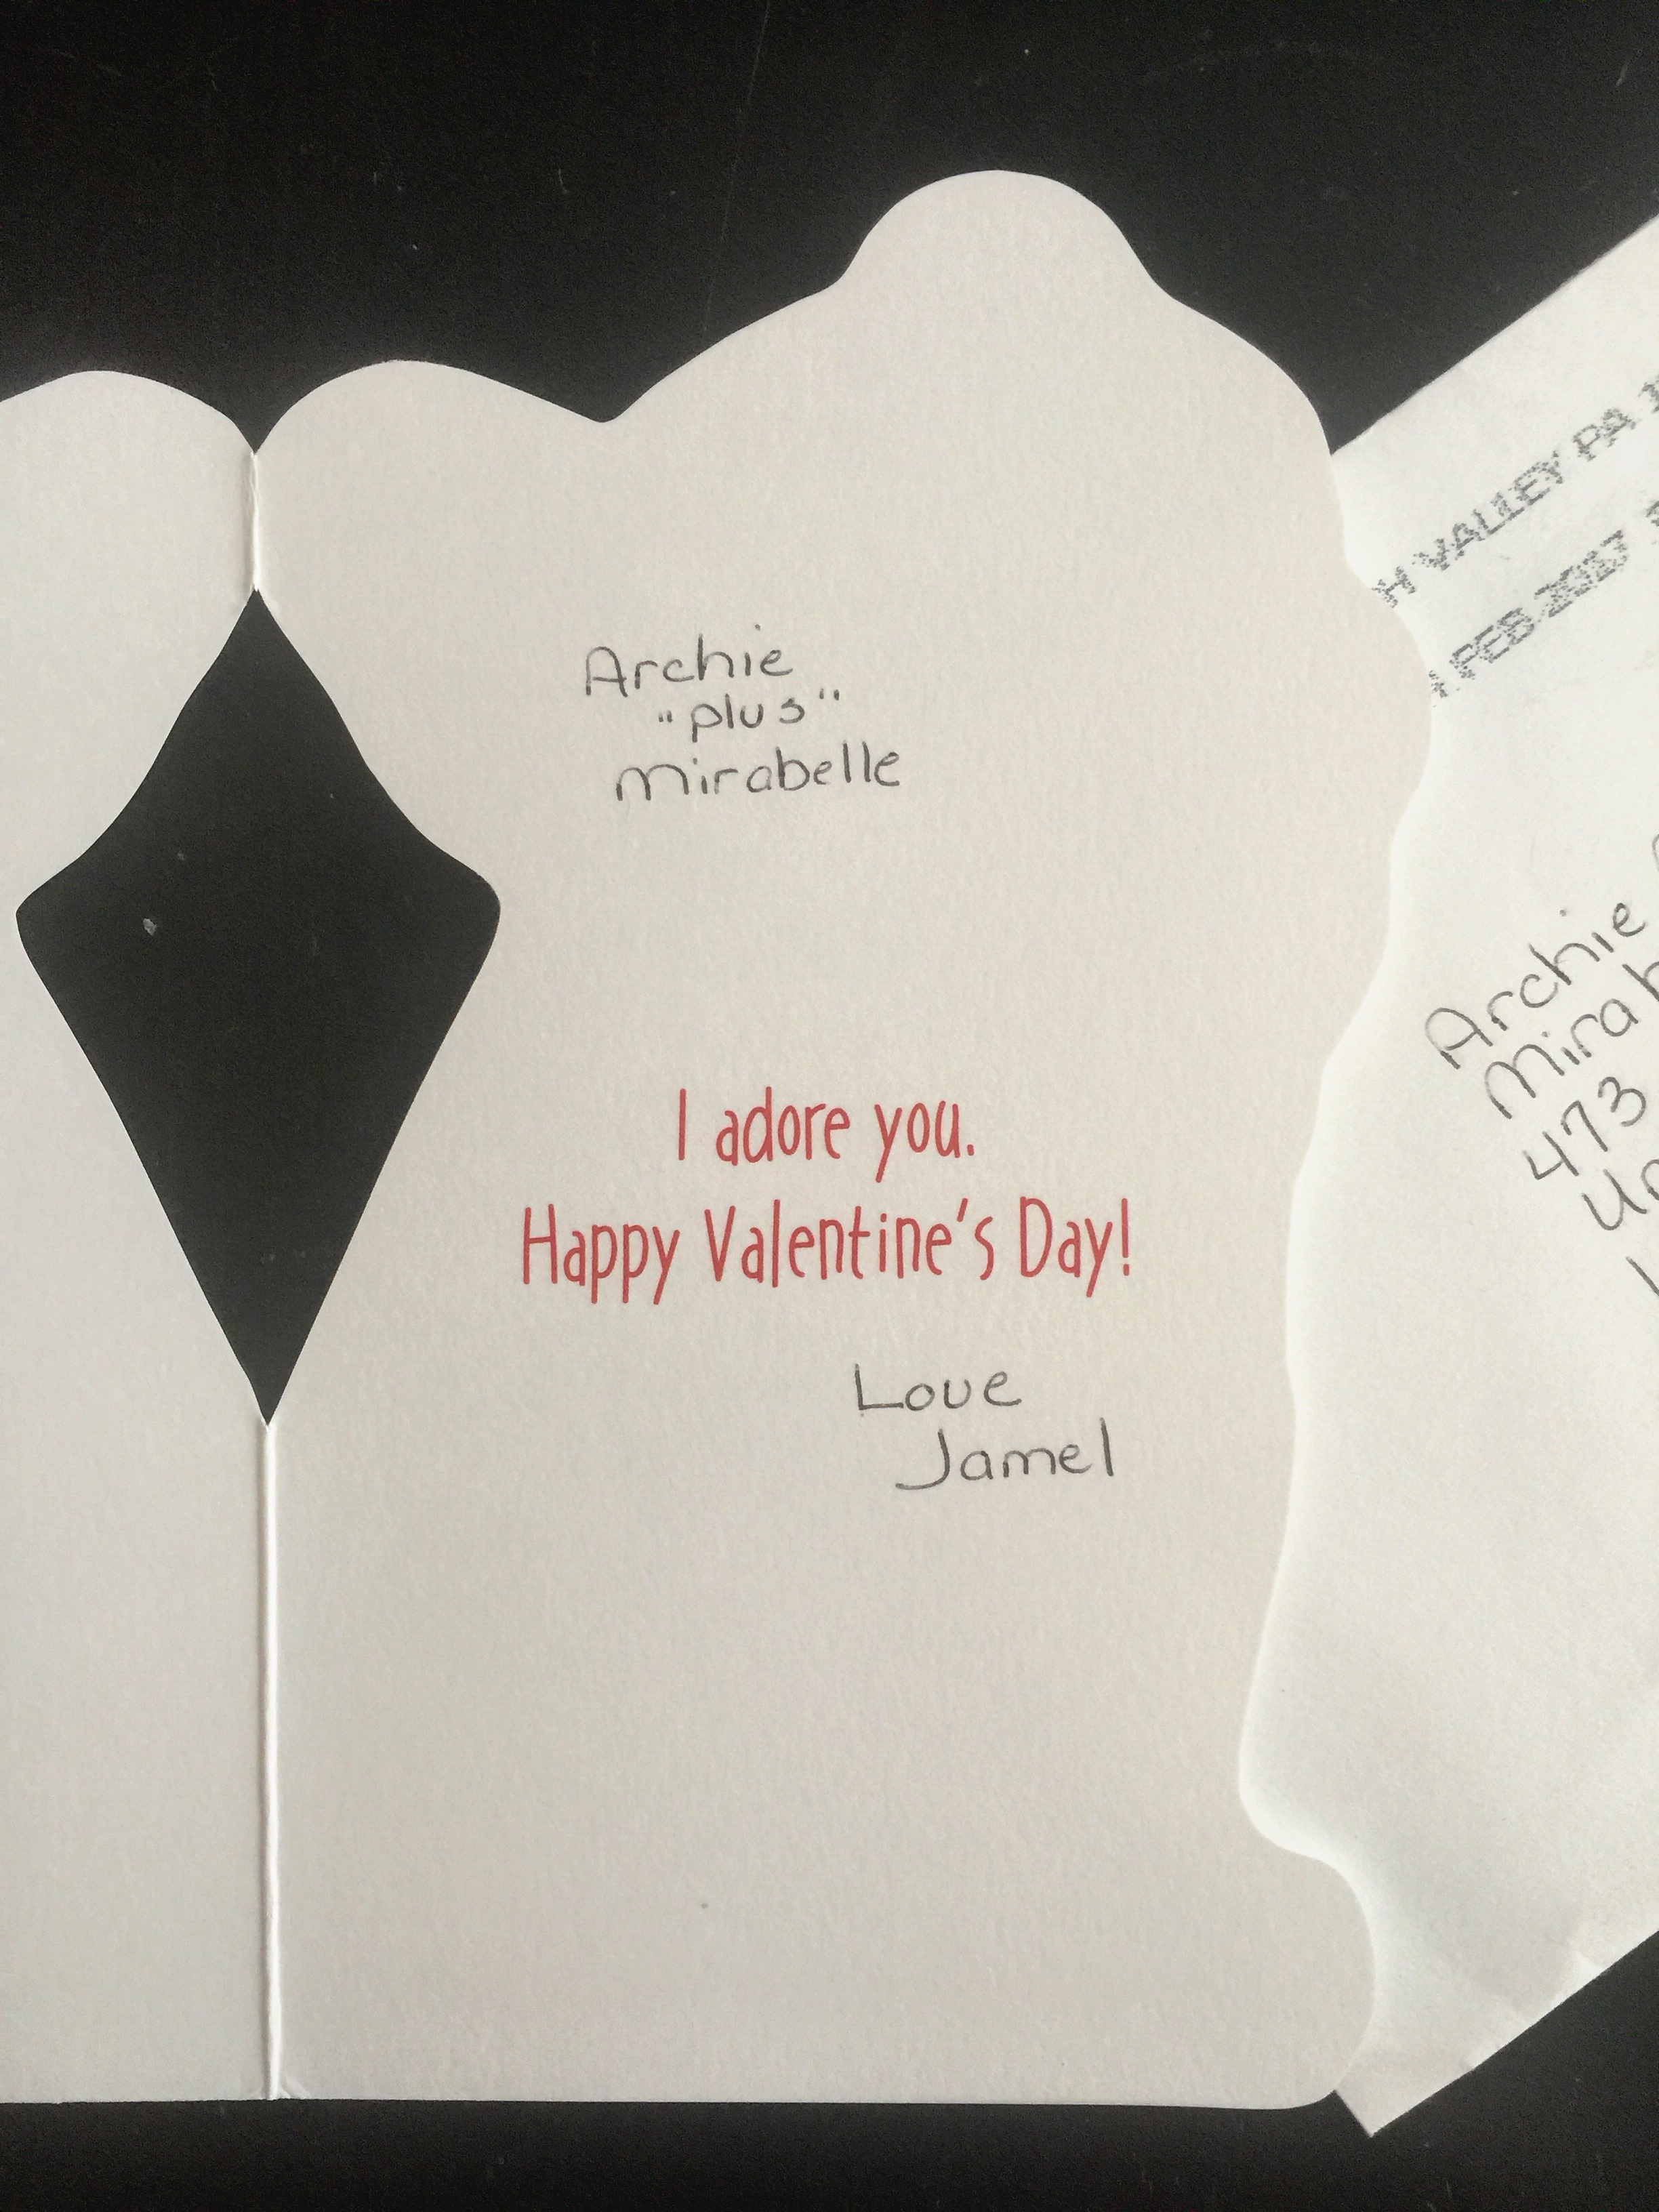 Archie
"plus"
Mirabelle
I adore you.
Happy Valentine's Day!
Love
Jamel
H VALLEY PA
FEB 2017
Archie
Mirab
473
Un